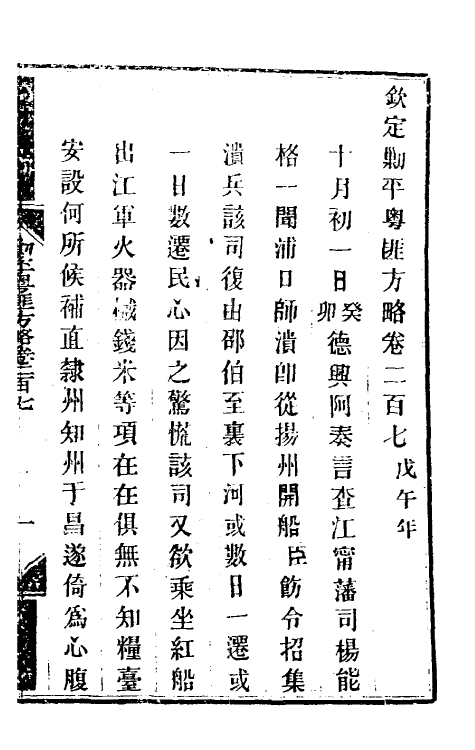 欽定剿平粵匪方略卷二百七 戊午年
十月初一日癸卯德興阿奏言查江甯藩司楊能
格一聞浦口師潰卽從揚州開船臣飭令招集
潰兵該司復由邵伯至裏下河或數日一遷或
一日數遷民心因之驚慌該司又欲乘坐紅船
出江軍火器械錢米等項在在俱無不知糧臺
安設何所候補直隸州知州于昌遂倚爲心腹
剿平粵匪方略卷二百七
一